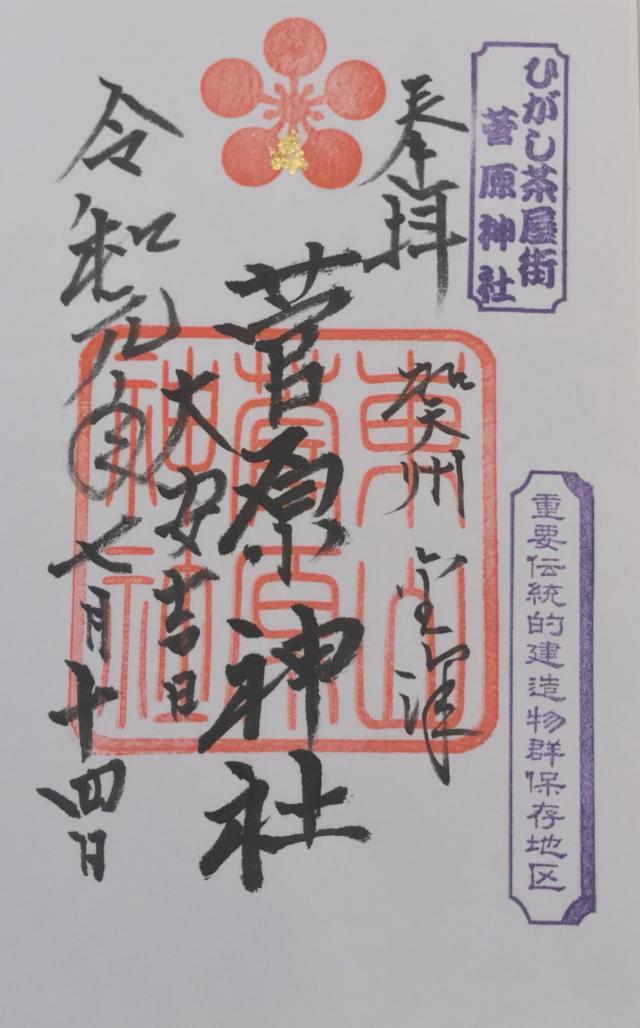 ひがし茶屋街
菅原神社
重要伝統的建造物群保存地区
奉拝
賀州 金澤
菅原神社
大安吉日
令和元 七月十四日
東山
菅原
神社